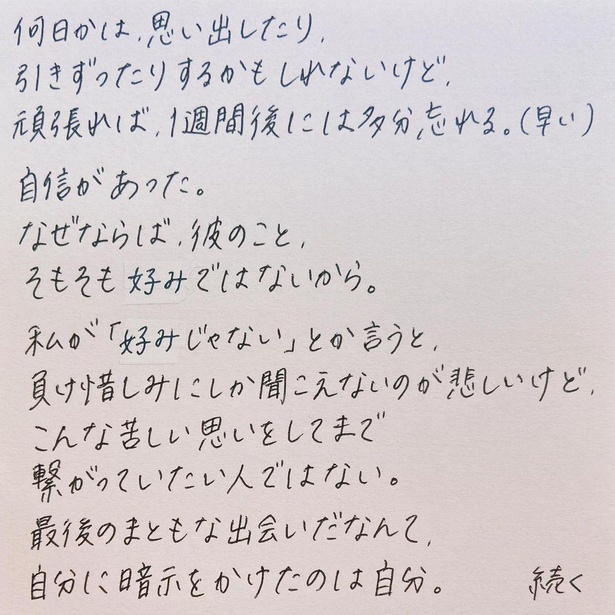 何日かは、思い出したり、
引きずったりするかもしれないけど、
頑張れば、1週間後には多分、忘れる。(早い)
自信があった。
なぜならば、彼のこと、
そもそも好みではないから。
私が「好みじゃない」とか言うと、
負け惜しみにしか聞こえないのが悲しいけど、
こんな苦しい思いをしてまで
繋がっていたい人ではない。
最後のまともな出会いだなんて、
自分に暗示をかけたのは自分。 続く